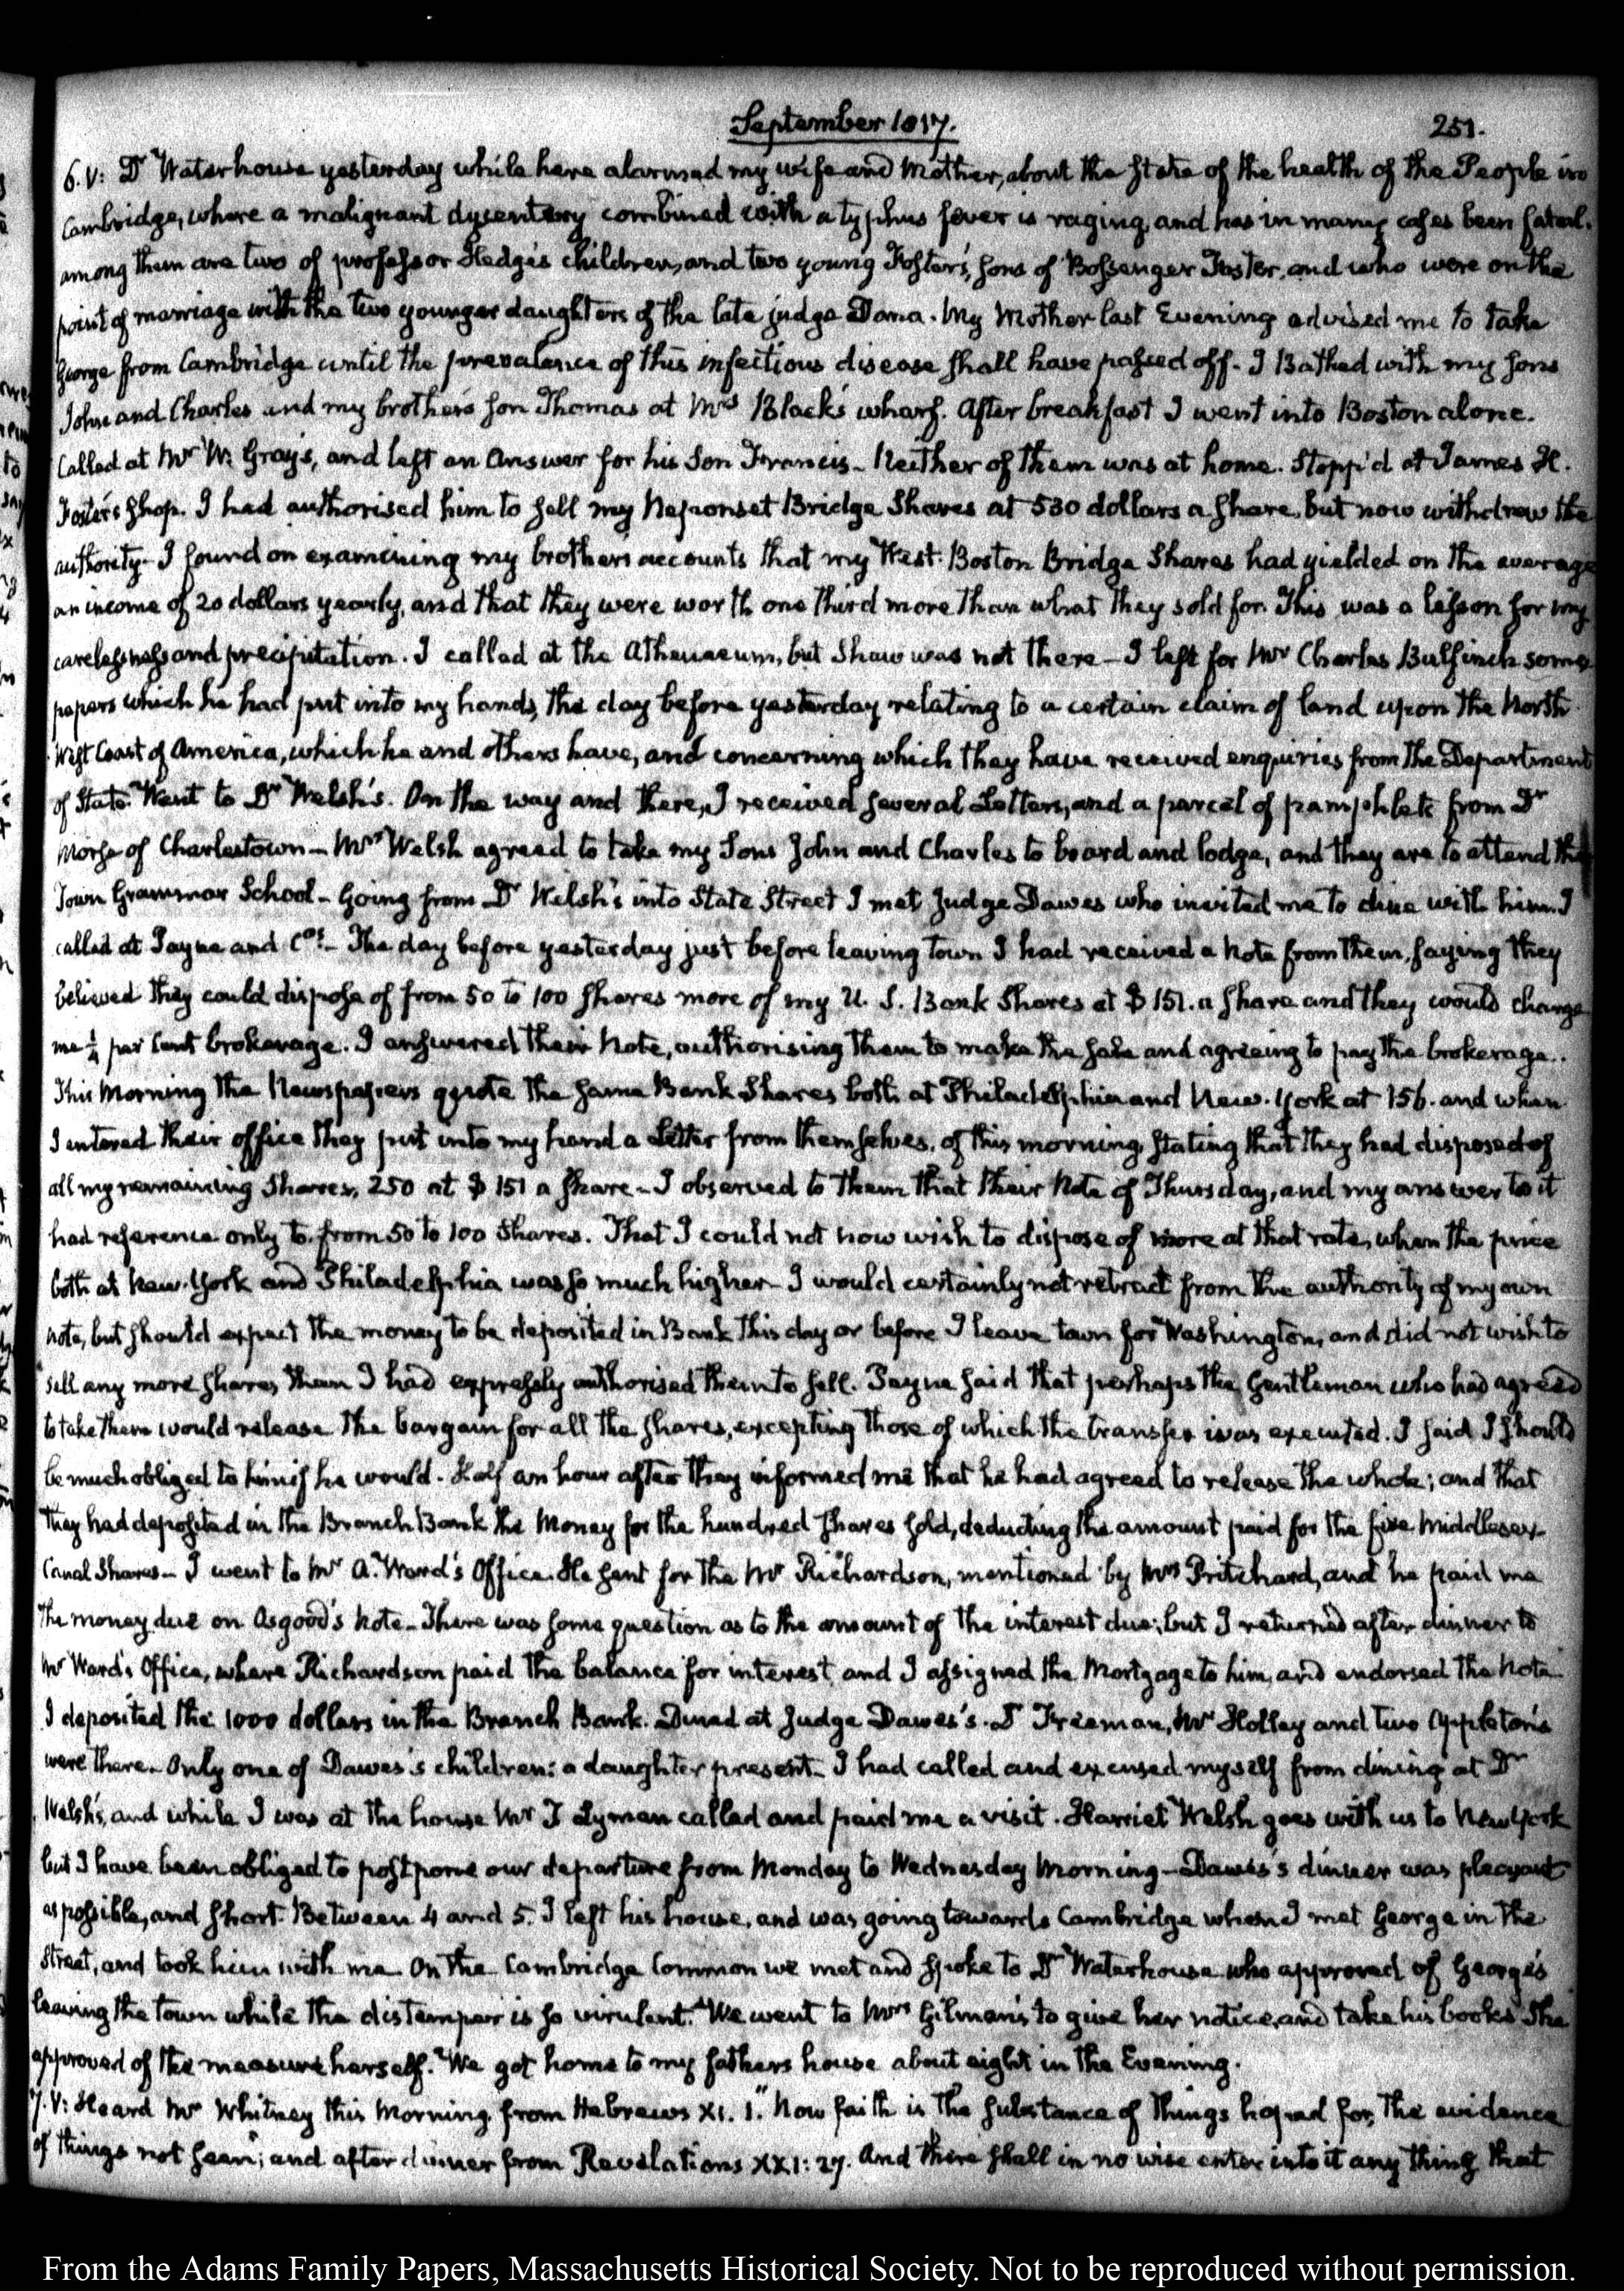 September 1817.
251.
6. V: Dr Waterhouse yesterday while here alarmed my wife and Mother, about the State of the health of the People in
Cambridge, where a malignant dysentery combined with a typhus fever is raging, and has in many cases been fatal.
among them are two of professor Hedge's children, and two young Foster's, sons of Bossenger Foster, and who were on the
point of marriage with the two younger daughters of the late judge Dana. My Mother last Evening advised me to take
George from Cambridge until the prevalence of this infectious disease shall have passed off. I Bathed with my sons
John and Charles and my brother's son Thomas at Mrs Black's wharf. After breakfast I went into Boston alone.
Called at Mr W. Gray's, and left an Answer for his Son Francis. Neither of them was at home. Stopp'd at James H.
Foster's shop. I had authorised him to sell my Neponset Bridge Shares at 530 dollars a share, but now withdrew the
authority. I found on examining my brothers accounts that my West-Boston Bridge Shares had yielded on the average
an income of 20 dollars yearly, and that they were worth one third more than what they sold for. This was a lesson for my
carelessness and precipitation. I called at the Athenaeum, but Shaw was not there - I left for Mr Charles Bulfinch some
papers which he had put into my hands, the day before yesterday relating to a certain claim of land upon the North
West Coast of America, which he and others have, and concerning which they have received enquiries from the Department
of State. Went to Dr Welsh's. On the way and there, I received several Letters, and a parcel of pamphlets from Dr
Morse of Charlestown - Mrs Welsh agreed to take my Sons John and Charles to board and lodge, and they are to attend the
Town Grammar School - Going from Dr Welsh's into State Street I met Judge Dawes who invited me to dine with him. I
called at Payne and Cos. - The day before yesterday just before leaving town I had received a Note from them, saying they
believed they could dispose of from 50 to 100 shares more of my U. S. Bank Shares at $ 151. a share and they would charge
me ¼ per Cent brokerage. I answered their Note, authorising them to make the sale and agreeing to pay the brokerage..
This Morning the Newspapers quote the same Bank Shares both at Philadelphia and New-York at 156. and when
I entered their office they put into my hand a Letter from themselves, of this morning, stating that they had disposed of
all my remaining Shares, 250 at $ 151 a share - I observed to them that their Note of Thursday, and my answer to it
had reference only to from 50 to 100 Shares. That I could not now wish to dispose of more at that rate, when the price
both at New-York and Philadelphia was so much higher - I would certainly not retract from the authority of my own
note, but should expect the money to be deposited in Bank this day or before I leave town for Washington, and did not wish to
sell any more shares than I had expressly authorised them to sell. Payne said that perhaps the Gentleman who had agreed
to take them would release the bargain for all the shares, excepting those of which the transfer was executed. I said I should
be much obliged to him if he would. Half an hour after they informed me that he had agreed to release the whole; and that
they had deposited in the Branch Bank the Money for the hundred shares sold, deducting the amount paid for the five Middlesex
Canal Shares - I went to Mr A. Ward's Office. He sent for the Mr Richardson, mentioned by Mrs Pritchard, and he paid me
the money due on Osgood's Note - There was some question as to the amount of the interest due; but I returned after dinner to
Mr Ward's Office, where Richardson paid the balance for interest, and I assigned the Mortgage to him, and endorsed the Note.
I deposited the 1000 dollars in the Branch Bank. Dined at Judge Dawes's. Dr Freeman, Mr Holley and two Appleton's
were there. Only one of Dawes's children: a daughter present. I had called and excused myself from dining at Dr
Welsh's, and while I was at the house Mr T Lyman called and paid me a visit. Harriet Welsh goes with us to New York
but I have been obliged to postpone our departure from Monday to Wednesday Morning - Dawes's dinner was pleasant
as possible, and short. Between 4 and 5. I left his house, and was going towards Cambridge when I met George in the
Street, and took him with me. On the Cambridge Common we met and spoke to Dr Waterhouse who approved of George's
leaving the town while the distemper is so virulent. We went to Mrs Gilman's to give her notice, and take his books. She
approved of the measure herself. We got home to my fathers house about eight in the Evening.
7. V: Heard Mr Whitney this Morning from Hebrews XI. 1. "Now faith is the substance of things hoped for, the evidence
of things not seen"; and after dinner from Revelations XXI: 27. And there shall in no wise enter into it any thing that
From the Adams Family Papers, Massachusetts Historical Society. Not to be reproduced without permission.